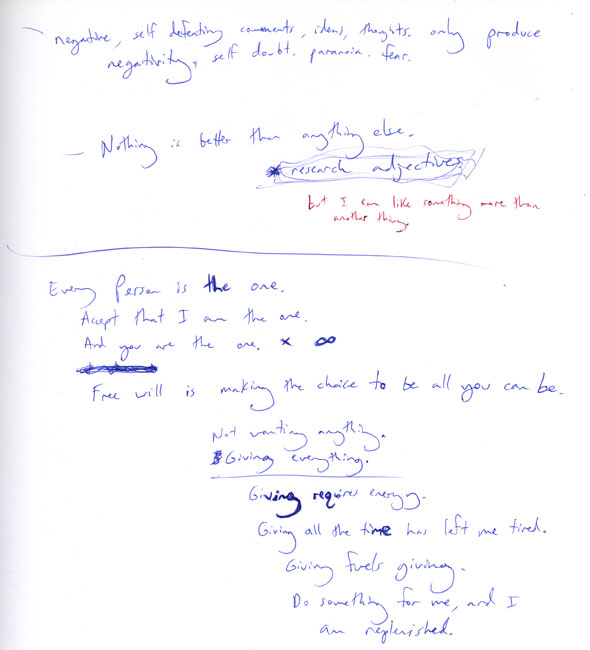 — negative, self defeating comments, ideas, thoughts. only produce
negativity, self doubt. paranoia. fear.
— Nothing is better than anything else.
* research adjectives.
but I can like something more than
another thing.
Every Person is the one.
Accept that I am the one.
And you are the one. x ∞
Free will is making the choice to be all you can be.
Not wanting anything.
Giving everything.
Giving requires energy.
Giving all the time has left me tired.
Giving fuels giving.
Do something for me, and I
am replenished.